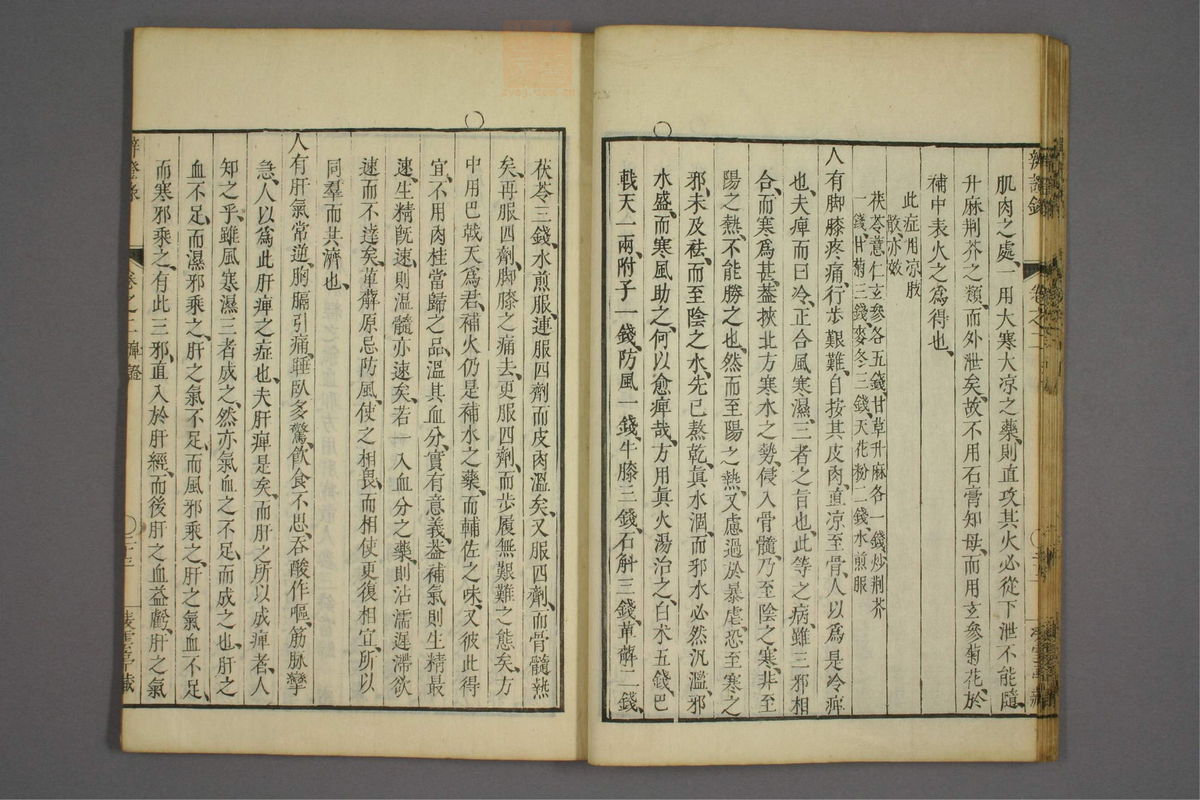 辨證錄 卷之二
肌肉之處、一用大寒大凉之藥、則直攻其火、必從下泄、不能隨
升麻荆芥之類、而外泄矣、故不用石膏知母、而用玄參菊花、於
補中表火之爲得也、
此症用凉肢
散、亦效
茯苓薏仁玄參各五錢、甘草升麻各一錢、炒荆芥
一錢、甘菊三錢、麥冬三錢、天花粉二錢、水煎服
人有脚膝疼痛、行步艱難、自按其皮肉、直凉至骨、人以爲是冷痺
也、夫痺而曰冷、正合風寒濕三者之旨也、此等之病、雖三邪相
合、而寒爲甚、葢挾北方寒水之勢、侵入骨髓、乃至陰之寒、非至
陽之熱、不能勝之也、然而至陽之熱、又慮過於暴虐、恐至寒之
邪、未及袪、而至陰之水、先已熬乾、眞水涸、而邪水必然汎濫、邪
水盛、而寒風助之、何以愈痺哉、方用眞火湯治之、白术五錢、巴
戟天一兩、附子一錢、防風一錢、牛膝三錢、石斛三錢、萆薢二錢、
茯苓三錢、水煎服、連服四劑、而皮肉溫矣、又服四劑、而骨髓熱
矣、再服四劑、脚膝之痛去、更服四劑、而步履無艱難之態矣、方
中用巴戟天爲君、補火仍是補水之藥、而輔佐之味、又彼此得
宜、不用肉桂當歸之品、溫其血分、實有意義、葢補氣則生精最
速、生精旣速、則溫髓亦速矣、若一入血分之藥、則沾濡遲滯、欲
速而不達矣、萆薢原忌防風、使之相畏、而相使、更復相宜、所以
同羣而共濟也、
人有肝氣常逆、胸膈引痛、睡臥多驚、飮食不思、吞酸作嘔、筋脉攣
急、人以爲此肝痺之症也、夫肝痺是矣、而肝之所以成痺者、人
知之乎、雖風寒濕三者成之、然亦氣血之不足、而成之也、肝之
血不足、而濕邪乘之、肝之氣不足、而風邪乘之、肝之氣血不足、
而寒邪乘之、有此三邪、直入於肝經、而後肝之血益虧、肝之氣
辨證錄 卷之二 痺證